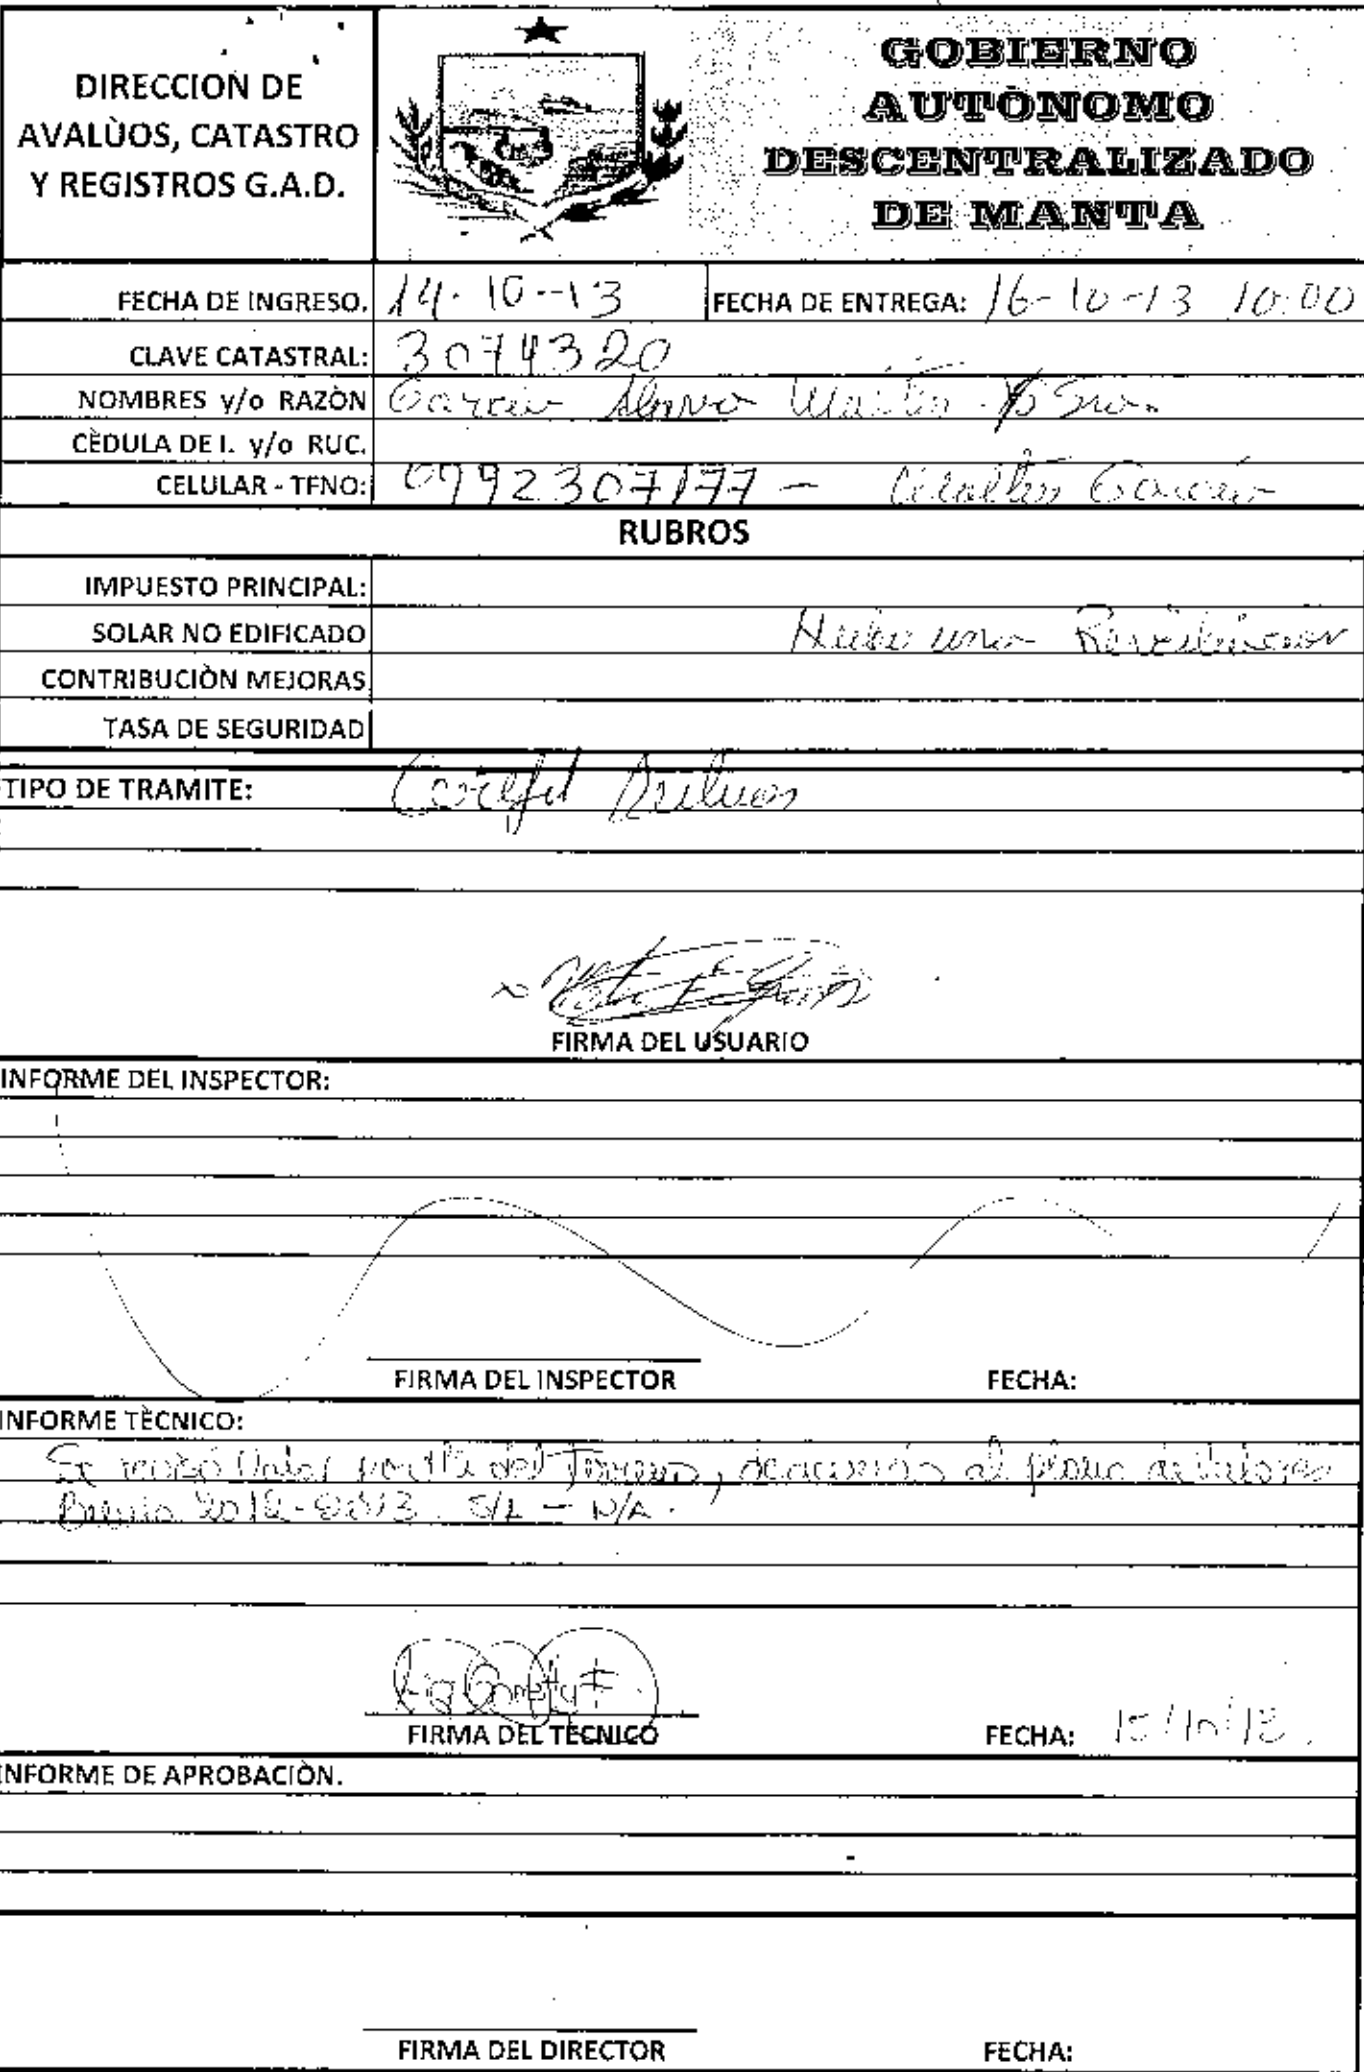 DIRECCION DE
AVALÙOS, CATASTRO
Y REGISTROS G.A.D.
GOBIERNO
AUTÒNOMO
DESCENTRALIZADO
DE MANTA
FECHA DE INGRESO. 14-10-13 FECHA DE ENTREGA: 16-10-13 10:00
CLAVE CATASTRAL: 3074320
NOMBRES y/o RAZÒN
CÈDULA DE I. y/o RUC.
CELULAR - TFNO: 0992307177 - García
RUBROS
IMPUESTO PRINCIPAL:
SOLAR NO EDIFICADO
CONTRIBUCIÒN MEJORAS
TASA DE SEGURIDAD
TIPO DE TRAMITE:
FIRMA DEL USUARIO
INFORME DEL INSPECTOR:
FIRMA DEL INSPECTOR FECHA:
INFORME TÈCNICO:
Se valor del Terreno, al plano de valores
2012-2013. S/L - N/A.
FIRMA DEL TECNICO FECHA: 15/10/13.
INFORME DE APROBACIÒN.
FIRMA DEL DIRECTOR FECHA: